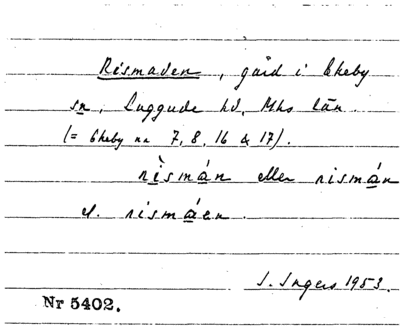 Rismaden, gård i Ekeby
sn, Luggude hd, Mhs län.
(= Ekeby nr 7, 8, 16 & 17).
rìsmán eller rismán
el. rismáen.
I. Ingers 1953.
Nr 5402.